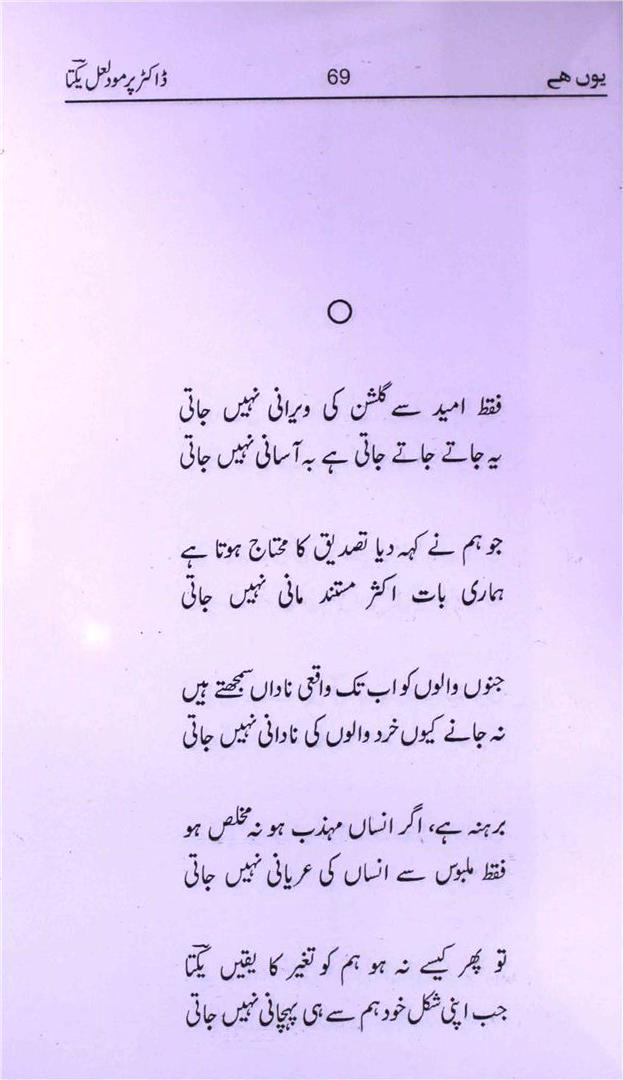 یوں ھے 69 ڈاکٹر پرمود لعل یکتاؔ
فقط امید سے گلشن کی ویرانی نہیں جاتی
یہ جاتے جاتے جاتی ہے بہ آسانی نہیں جاتی
جو ہم نے کہہ دیا تصدیق کا محتاج ہوتا ہے
ہماری بات اکثر مستند مانی نہیں جاتی
جنوں والوں کو اب تک واقعی ناداں سمجھتے ہیں
نہ جانے کیوں خرد والوں کی نادانی نہیں جاتی
برہنہ ہے، اگر انساں مہذب ہو نہ مخلص ہو
فقط ملبوس سے انساں کی عریانی نہیں جاتی
تو پھر کیسے نہ ہو ہم کو تغیر کا یقیں یکتاؔ
جب اپنی شکل خود ہم سے ہی پہچانی نہیں جاتی